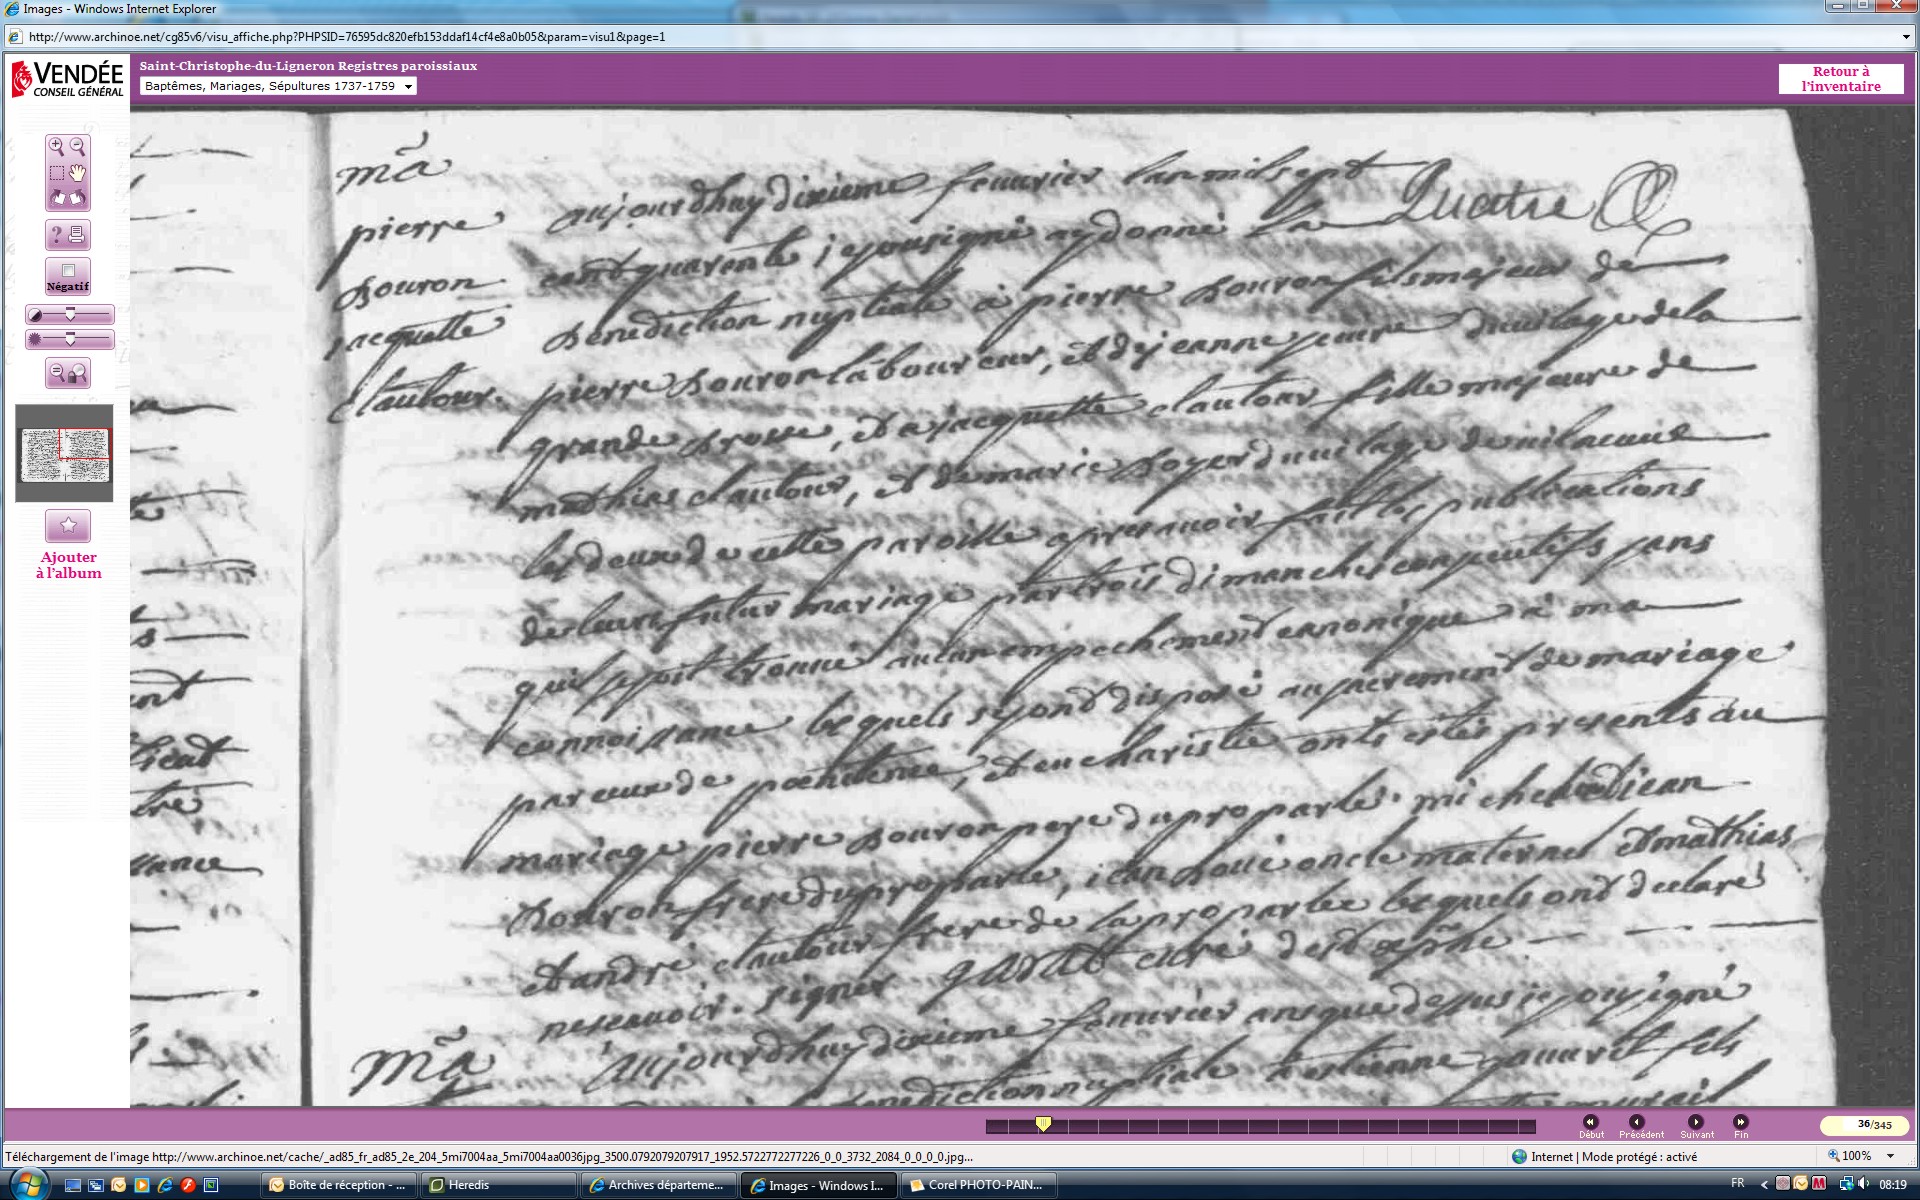 Images - Windows Internet Explorer
http://www.archinoe.net/cg85v6/visu_affiche.php?PHPSID=76595dc820efb153ddaf14cf4e8a0b05&param=visu1&page=1
VENDÉE
CONSEIL GÉNÉRAL
Saint-Christophe-du-Ligneron Registres paroissiaux
Baptêmes, Mariages, Sépultures 1737-1759
Retour à
l'inventaire
Négatif
Ajouter
à l'album
mã
pierre
Douron
jacquette
clautour.
Quatre
aujourdhuy dixieme feuurier lan mil sept
cent quarente je sousigné ay donné la
Benediction nuptiale à pierre Douron fils majeur de
pierre Douron laboureur, et de jeanne du uilage de la
grande, et a jacquette clautour fille majeure de
mathias clautour, et de marie Boyer du uilage de
les deux de cette paroisse apres auoir fait les publications
de leur futur mariage par trois dimanches consecutifs sans
quil se soit trouué aucun empechement canonique à ma
connoissance lesquels se sont disposé au sacrement de mariage
par ceux de poenitence, et eucharistie onts estés presents au
mariage pierre Douron pere du proparlé. michel et jean
Douron frere du proparlé, jean oncle maternel et mathias
et andré clautour frere de la proparlee lesquels ont declaré
ne scauoir signer curé de st
mã
Aujourdhuy dixieme feuurier an que dessus je sousigné
benediction nuptiale a estienne fils
Début
Précédent
Suivant
Fin
36/345
Téléchargement de l'image http://www.archinoe.net/cache/_ad85_fr_ad85_2e_204_5mi7004aa_5mi7004aa0036jpg_3500.0792079207917_1952.5722772277226_0_0_3732_2084_0_0_0_0.jpg...
Internet | Mode protégé : activé
100%
Boîte de réception - ...
Heredis
Archives départeme...
Images - Windows I...
Corel PHOTO-PAIN...
FR
08:19